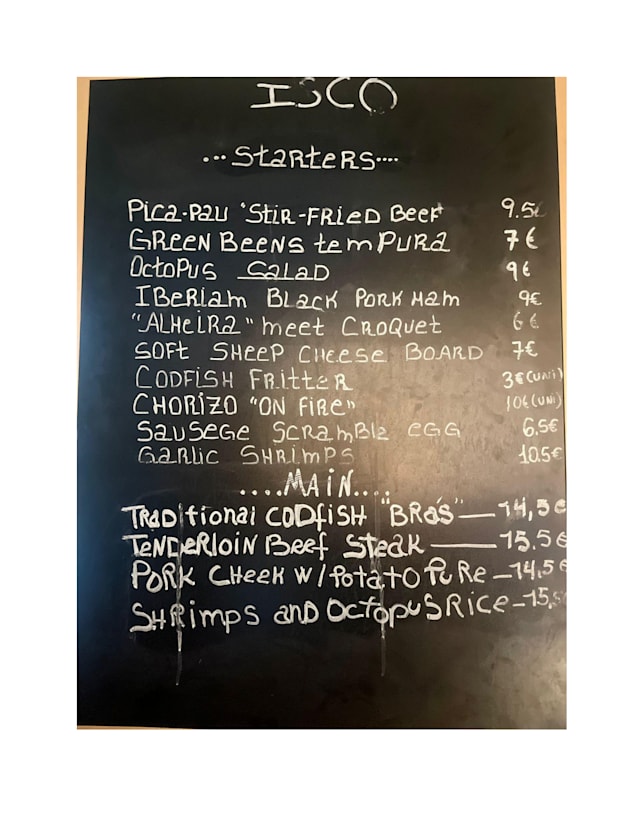 ISCO
...STARTERS....
PICA-PAU 'STIR-FRIED BEEF' 9.5€
GREEN BEENS tEMPURA 7€
OCTOPUS SALAD 9€
IBERIAM BLACK PORK HAM 9€
"ALHEIRA" MEET CROQUET 6€
SOFT SHEEP CHEESE BOARD 7€
CODFISH FRITTER 3€(UNI)
CHORIZO "ON FIRE" 10€(UNI)
SAUSEGE SCRAMBLE EGG 6.5€
GARLIC SHRIMPS 10.5€
....MAIN....
TRADITIONAL CODFISH "BRÁS"—14,5€
TENDERLOIN BEEF STEAK—15.5€
PORK CHEEK W/POTATO PURE—14,5€
SHRIMPS AND OCTOPUS RICE-15,5